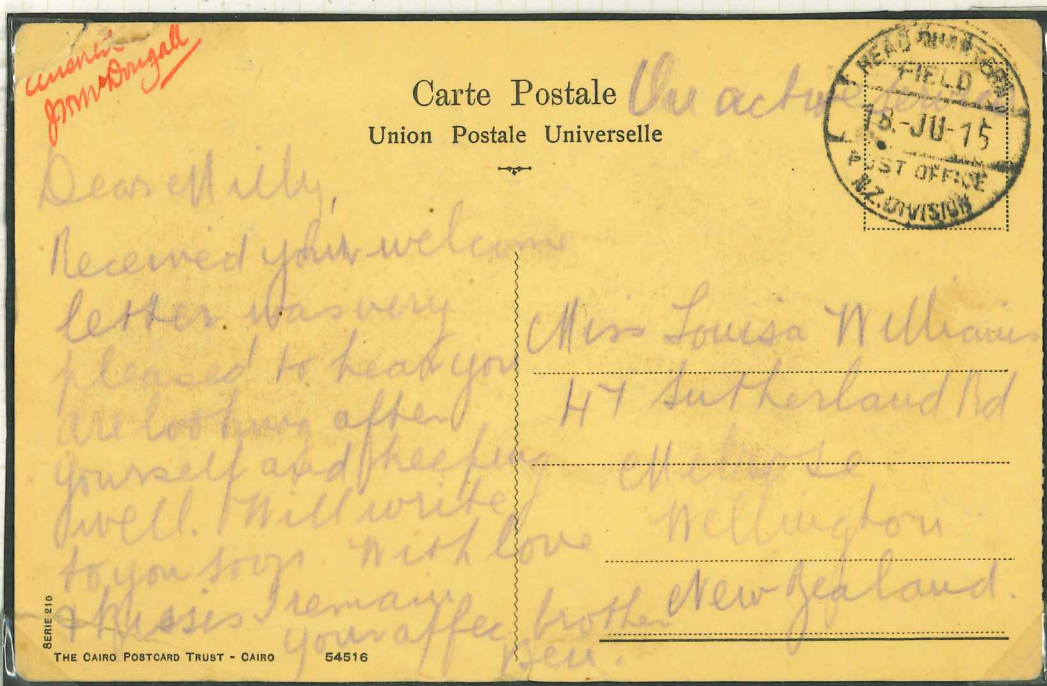 J McDougall
Carte Postale
On active service
Union Postale Universelle
HEAD QUARTERS
FIELD
18.-JU-15
POST OFFICE
N.Z. DIVISION
Dear Milly,
Received your welcome
letter was very
pleased to hear you
are looking after
yourself and keeping
well. Will write
to you soon With love
& kisses I remain
your affec brother
Ben.
Miss Louisa Williams
47 Sutherland Rd
Melrose
Wellington
New Zealand.
SERIE 210
THE CAIRO POSTCARD TRUST - CAIRO 54516